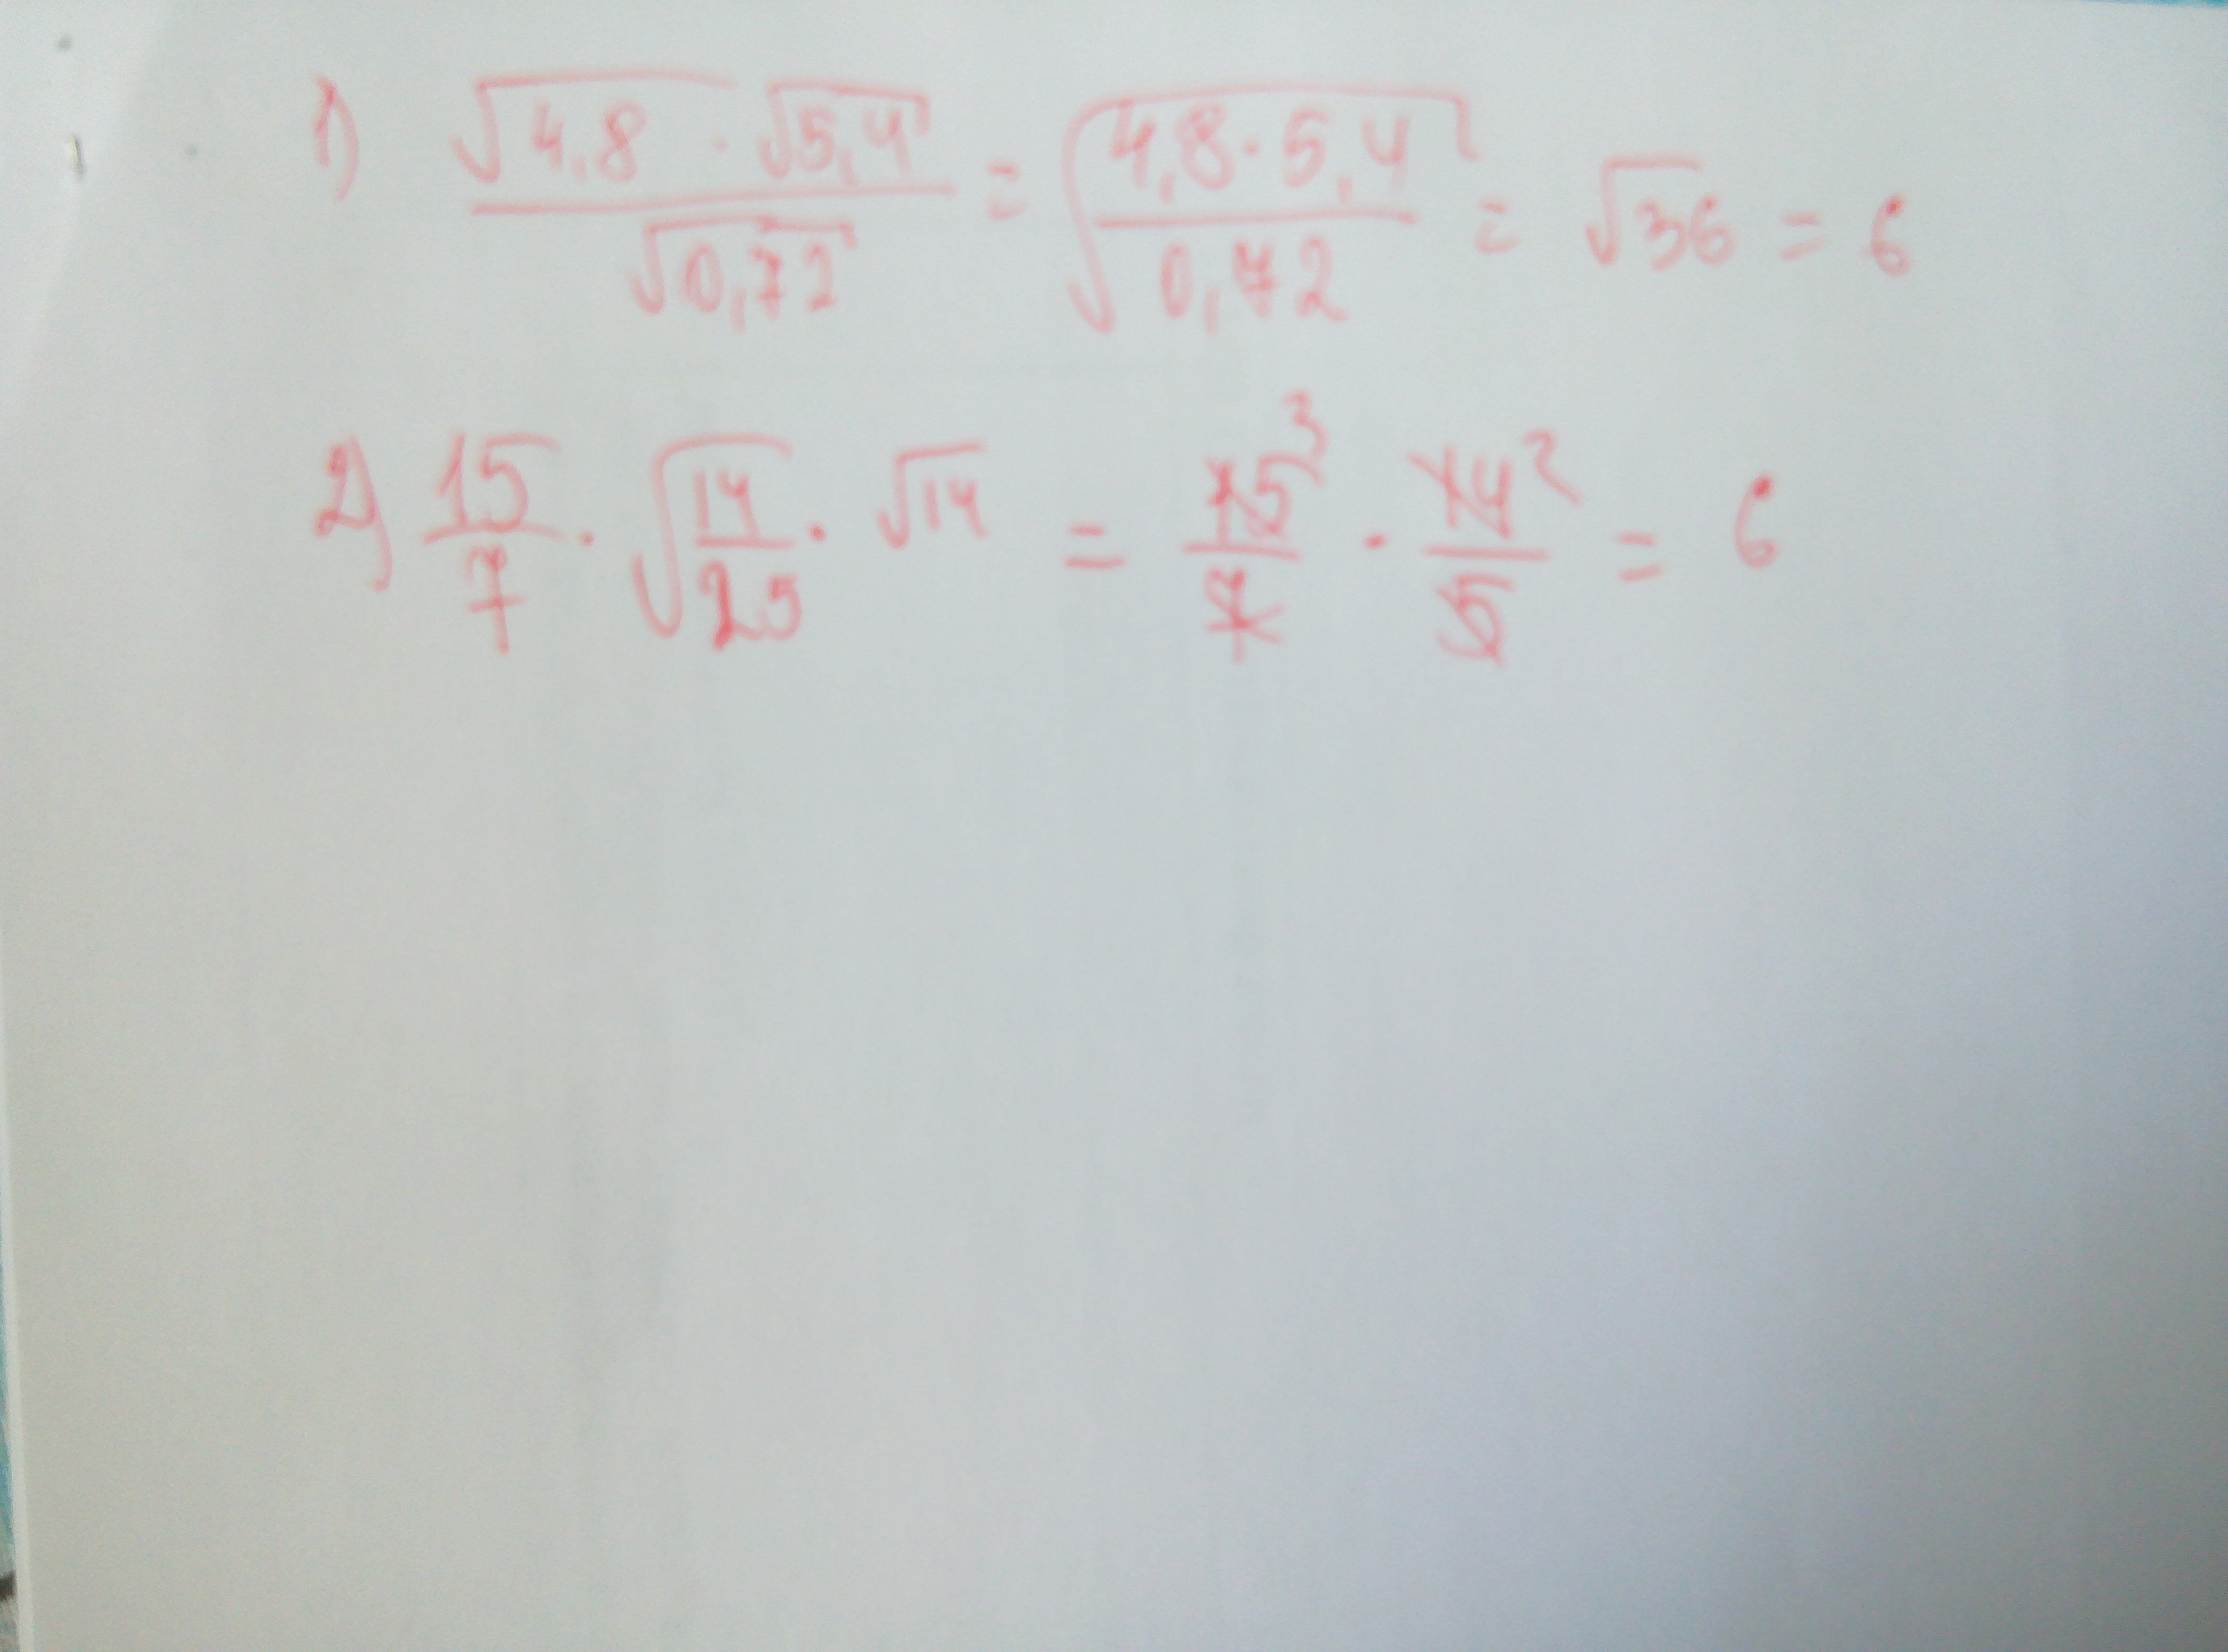 1) √4,8 · √5,4 / √0,72 = √(4,8 · 5,4 / 0,72) = √36 = 6
2) 15/7 · √(14/25) · √14 = 15³/7 · 14²/5 = 6